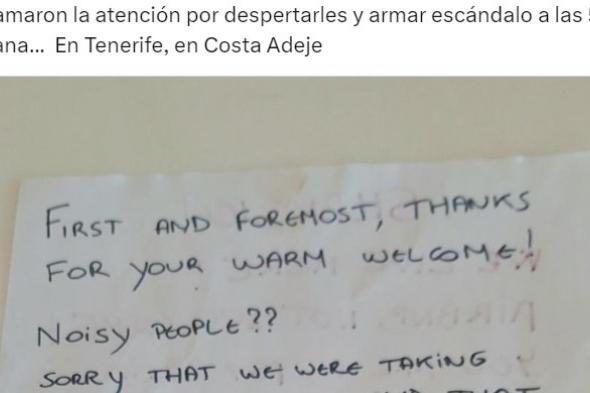 amaron la atención por despertarles y armar escándalo a las
ana... En Tenerife, en Costa Adeje
FIRST AND FOREMOST, THANKS
FOR YOUR WARM WELCOME!
NOISY PEOPLE??
SORRY THAT WE WERE TAKING
THAT